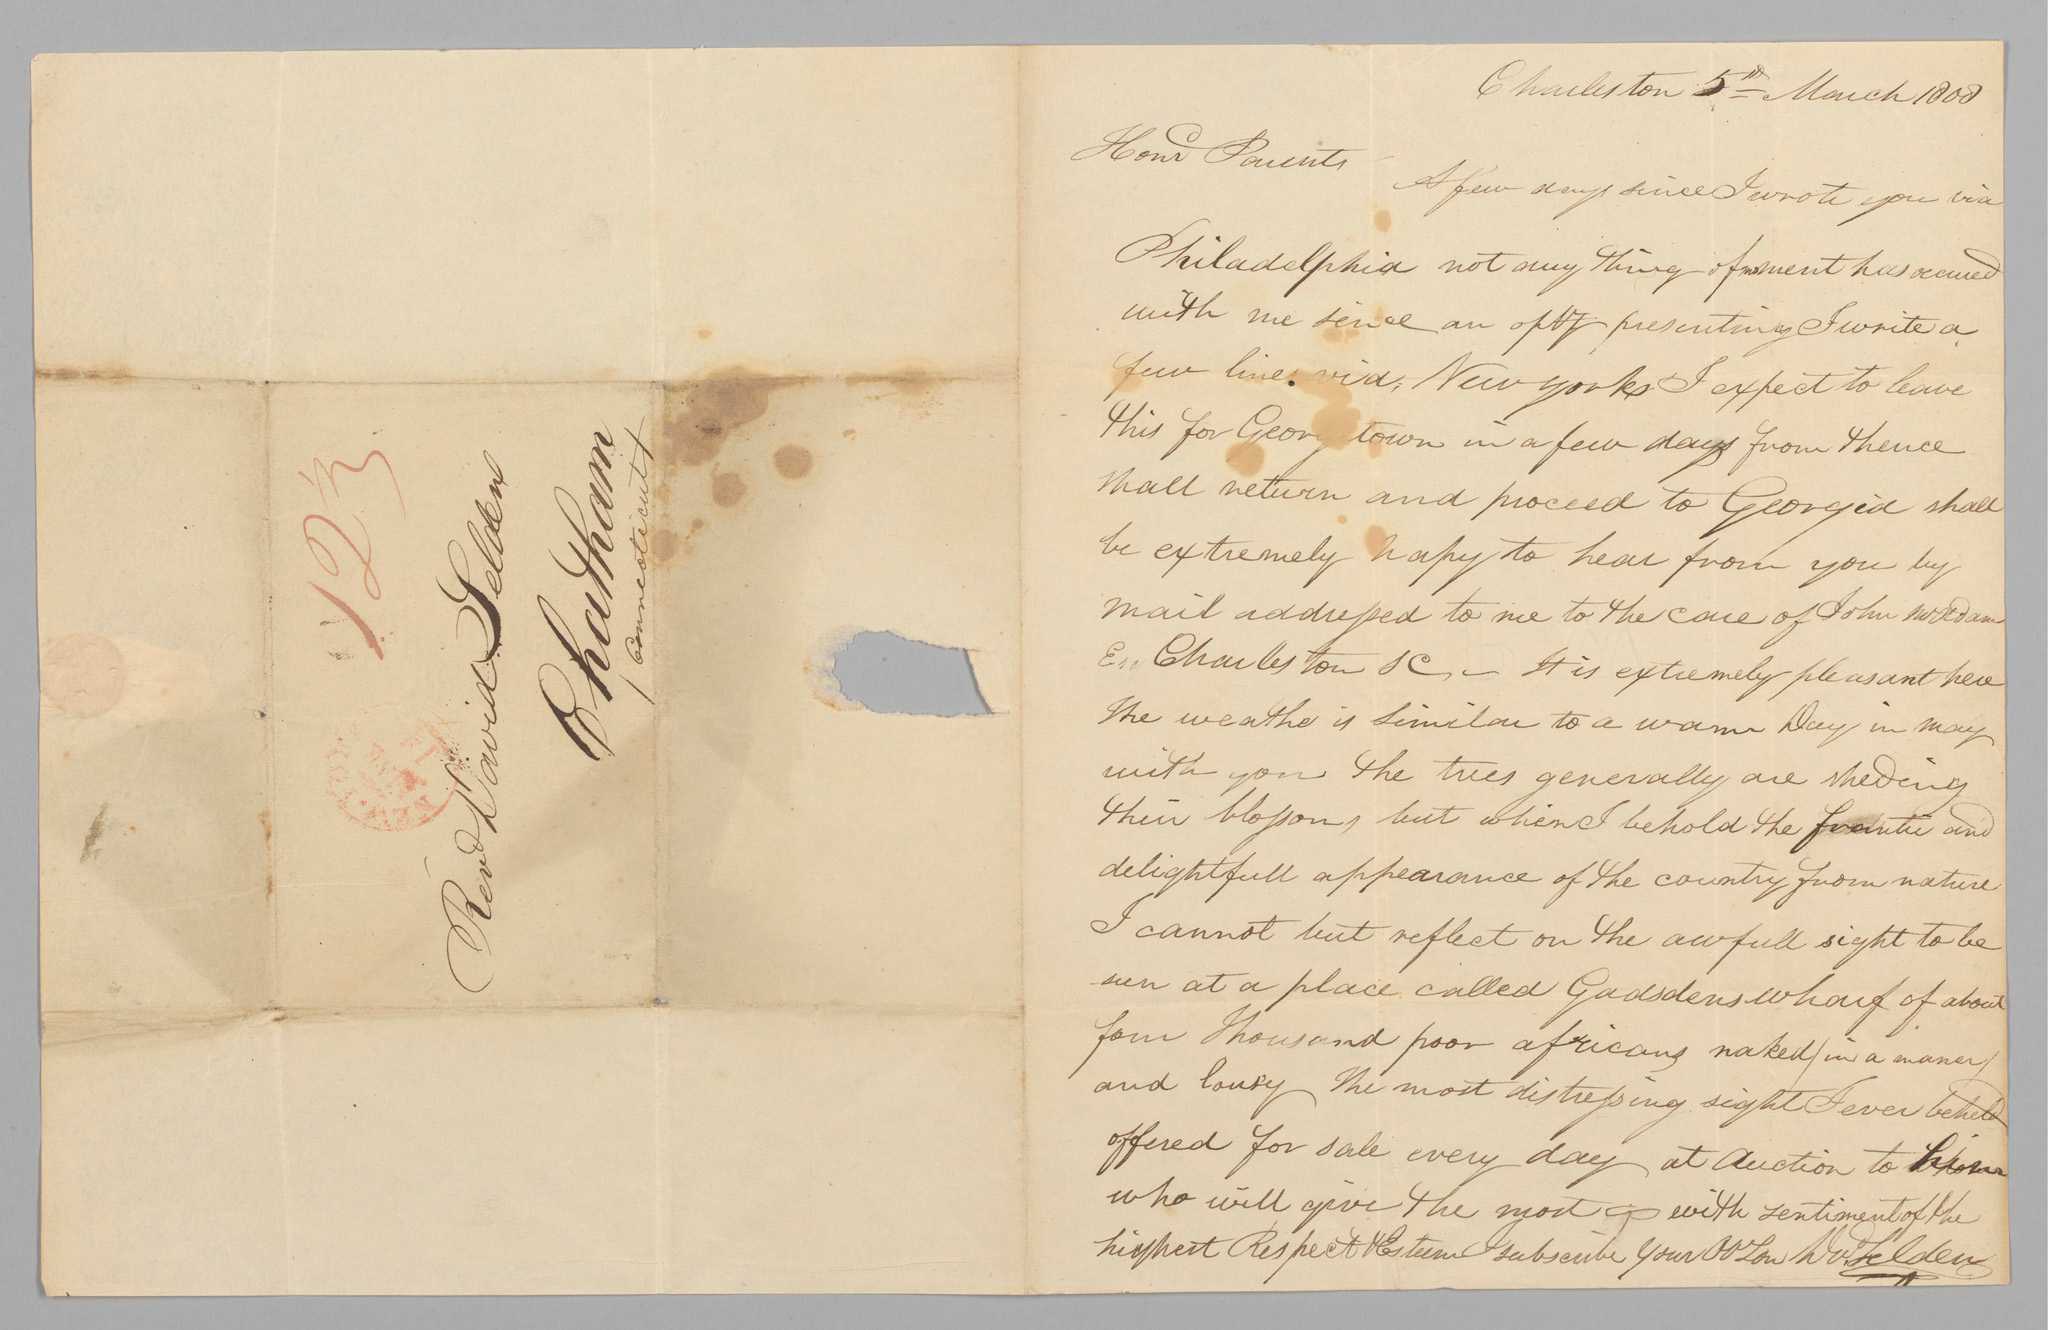 12½
Revd David Selden
Chatham
Connecticutt
Charleston 5th March 1808
Hond Parents
A few days since I wrote you via
Philadelphia not any thing of moment has occured
with me since an opty presenting I write a
few lines via, New york I expect to leave
this for Georgetown in a few days from thence
shall return and proceed to Georgia shall
be extremely hapy to hear from you by
mail addressed to me to the care of John
Charleston SC, – It is extremely pleasant here
the weathe is similar to a warm Day in may
with you the trees generally are sheding
their blossoms but when I behold the and
delightfull appearance of the country from nature
I cannot but reflect on the awfull sight to be
seen at a place called Gadsdens wharf of about
four thousand poor africans naked (in a maner)
and lousy the most distressing sight I ever beheld
offered for sale every day at Auction to him
who will give the most with sentiment of the
highest Respect & Esteem I subscribe your Selden